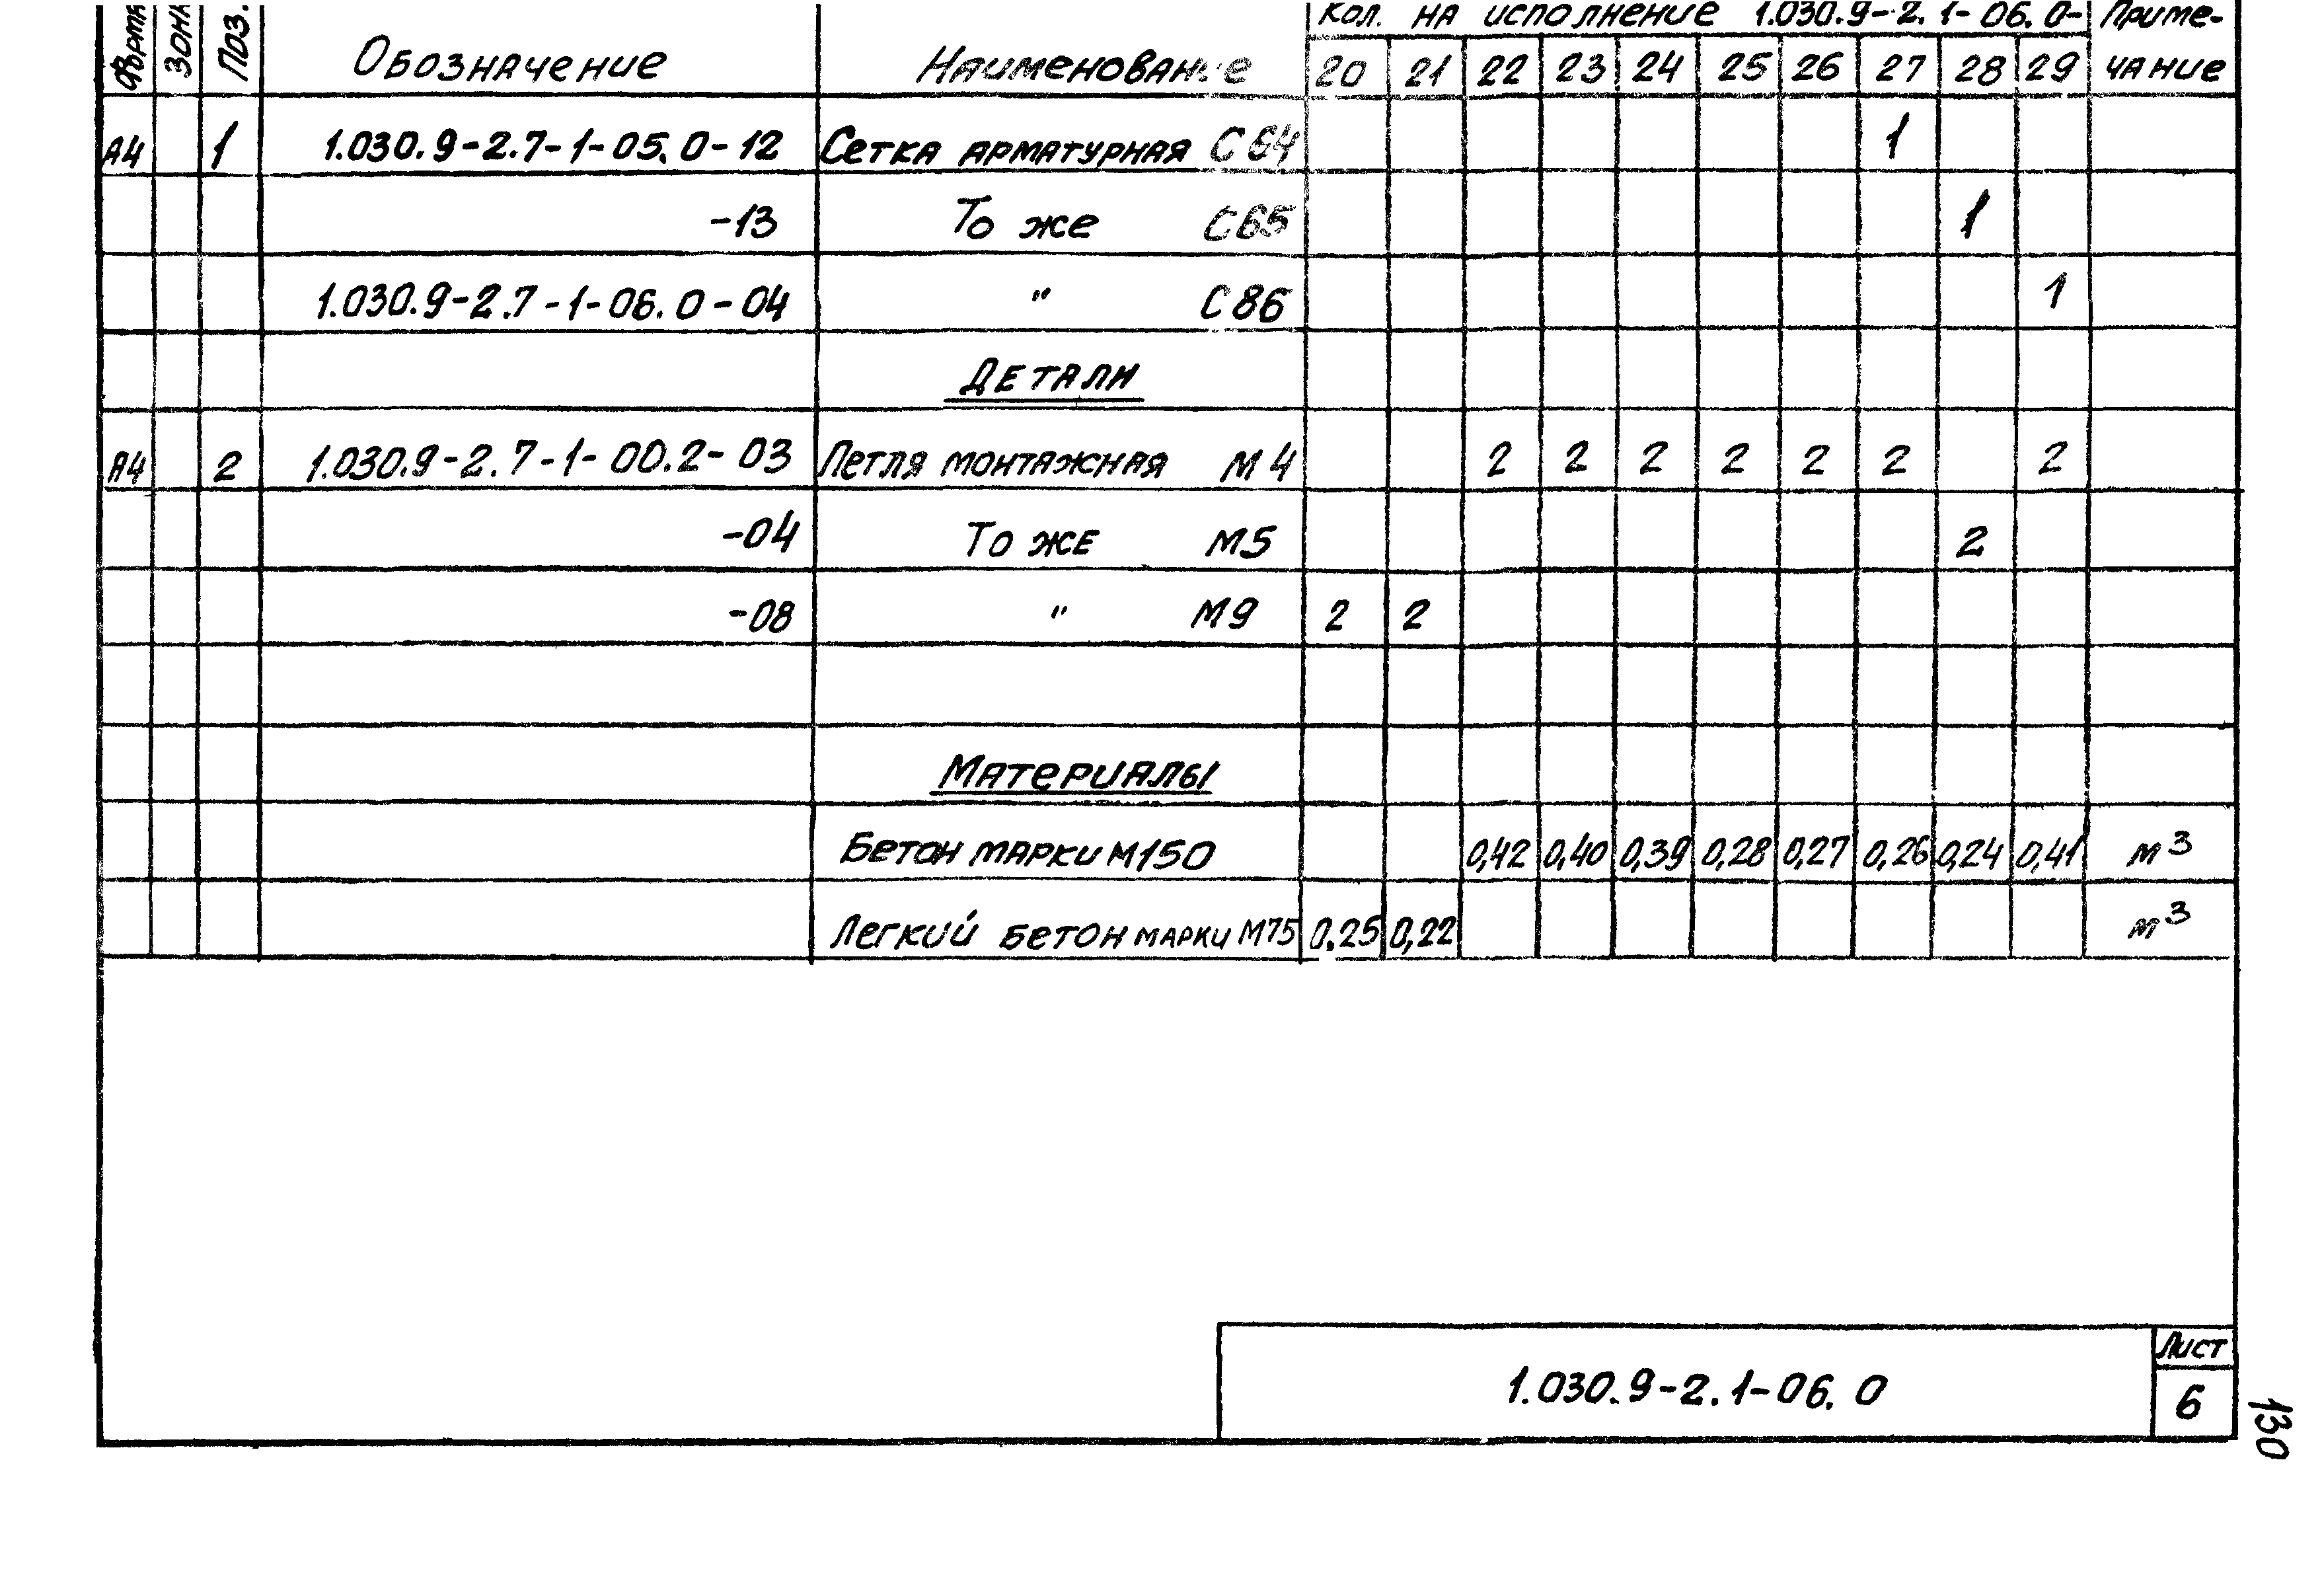 Форма Зона Поз. Обозначение Наименование Кол. на исполнение 1.030.9-2.1-06.0- Приме-
20 21 22 23 24 25 26 27 28 29 чание
А4 1 1.030.9-2.7-1-05.0-12 Сетка арматурная С64 1
-13 То же С65 1
1.030.9-2.7-1-06.0-04 " С86 1
Детали
А4 2 1.030.9-2.7-1-00.2-03 Петля монтажная М4 2 2 2 2 2 2 2
-04 То же М5 2
-08 " М9 2 2
Материалы
Бетон марки М150 0,42 0,40 0,39 0,28 0,27 0,26 0,24 0,41 м³
Легкий бетон марки М75 0,25 0,22 м³
1.030.9-2.1-06.0
Лист
6
130